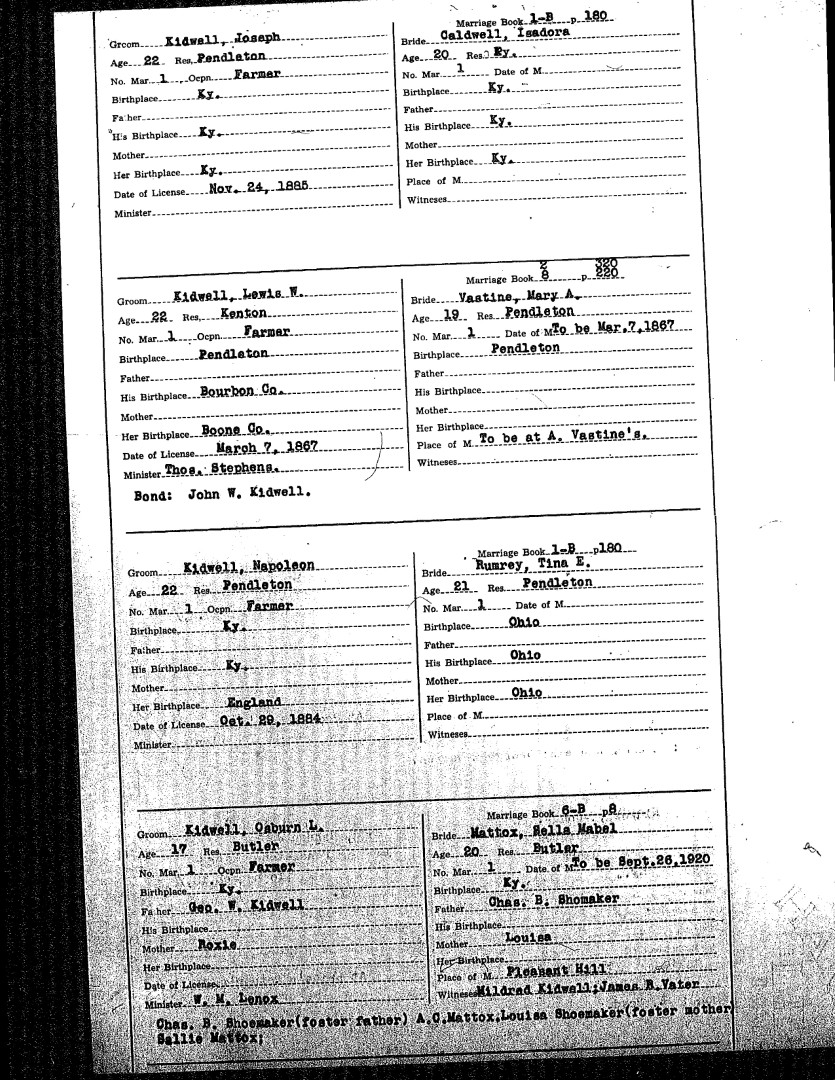 Marriage Book 1-B p 180
Groom Kidwell, Joseph
Age 22 Res. Pendleton
No. Mar 1 Ocpn. Farmer
Birthplace Ky.
Father
His Birthplace Ky.
Mother
Her Birthplace Ky.
Date of License Nov. 24, 1885
Minister
Bride Caldwell, Isadora
Age 20 Res. Ky.
No. Mar 1 Date of M.
Birthplace Ky.
Father
His Birthplace Ky.
Mother
Her Birthplace Ky.
Place of M.
Witneses
2 320
Marriage Book 8 p 220
Groom Kidwell, Lewis W.
Age 22 Res. Kenton
No. Mar. 1 Ocpn. Farmer
Birthplace Pendleton
Father
His Birthplace Bourbon Co.
Mother
Her Birthplace Boone Co.
Date of License March 7, 1867
Minister Thos. Stephens.
Bond: John W. Kidwell.
Bride Vastine, Mary A.
Age 19 Res Pendleton
No. Mar. 1 Date of M To be Mar.7,1867
Birthplace Pendleton
Father
His Birthplace
Mother
Her Birthplace
Place of M. To be at A. Vastine's.
Witneses
Marriage Book 1-B p180
Groom Kidwell, Napoleon
Age 22 Res. Pendleton
No. Mar. 1 Ocpn. Farmer
Birthplace Ky.
Father
His Birthplace Ky.
Mother
Her Birthplace England
Date of License Oct. 29, 1884
Minister
Bride Rumrey, Tina E.
Age 21 Res. Pendleton
No. Mar. 1 Date of M.
Birthplace Ohio
Father
His Birthplace Ohio
Mother
Her Birthplace Ohio
Place of M.
Witneses
Marriage Book 6-B p8
Groom Kidwell, Osburn L.
Age 17 Res. Butler
No. Mar. 1 Ocpn. Farmer
Birthplace Ky.
Father Geo. W. Kidwell
His Birthplace
Mother Roxie
Her Birthplace
Date of License
Minister W. M. Lenox
Bride Mattox, Mabel
Age 20 Res. Butler
No. Mar. 1 Date of M To be Sept.26,1920
Birthplace Ky.
Father Chas. B. Shomaker
His Birthplace
Mother Louisa
Her Birthplace
Place of M. Pleasant Hill
Witneses Mildred Kidwell;James R.Vater
Chas. B. Shoemaker(foster father) A.C.Mattox;Louisa Shoemaker(foster mother)
Sallie Mattox;